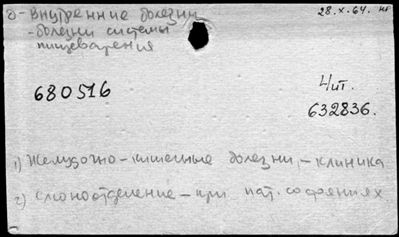 б-Внутренние болезни
28.X.64.
-болезни системы
пищеварения
680516
Лит.
632836.
1) Желудочно-кишечные болезни,-клиника
2) Слюноотделение-при пат. состояниях